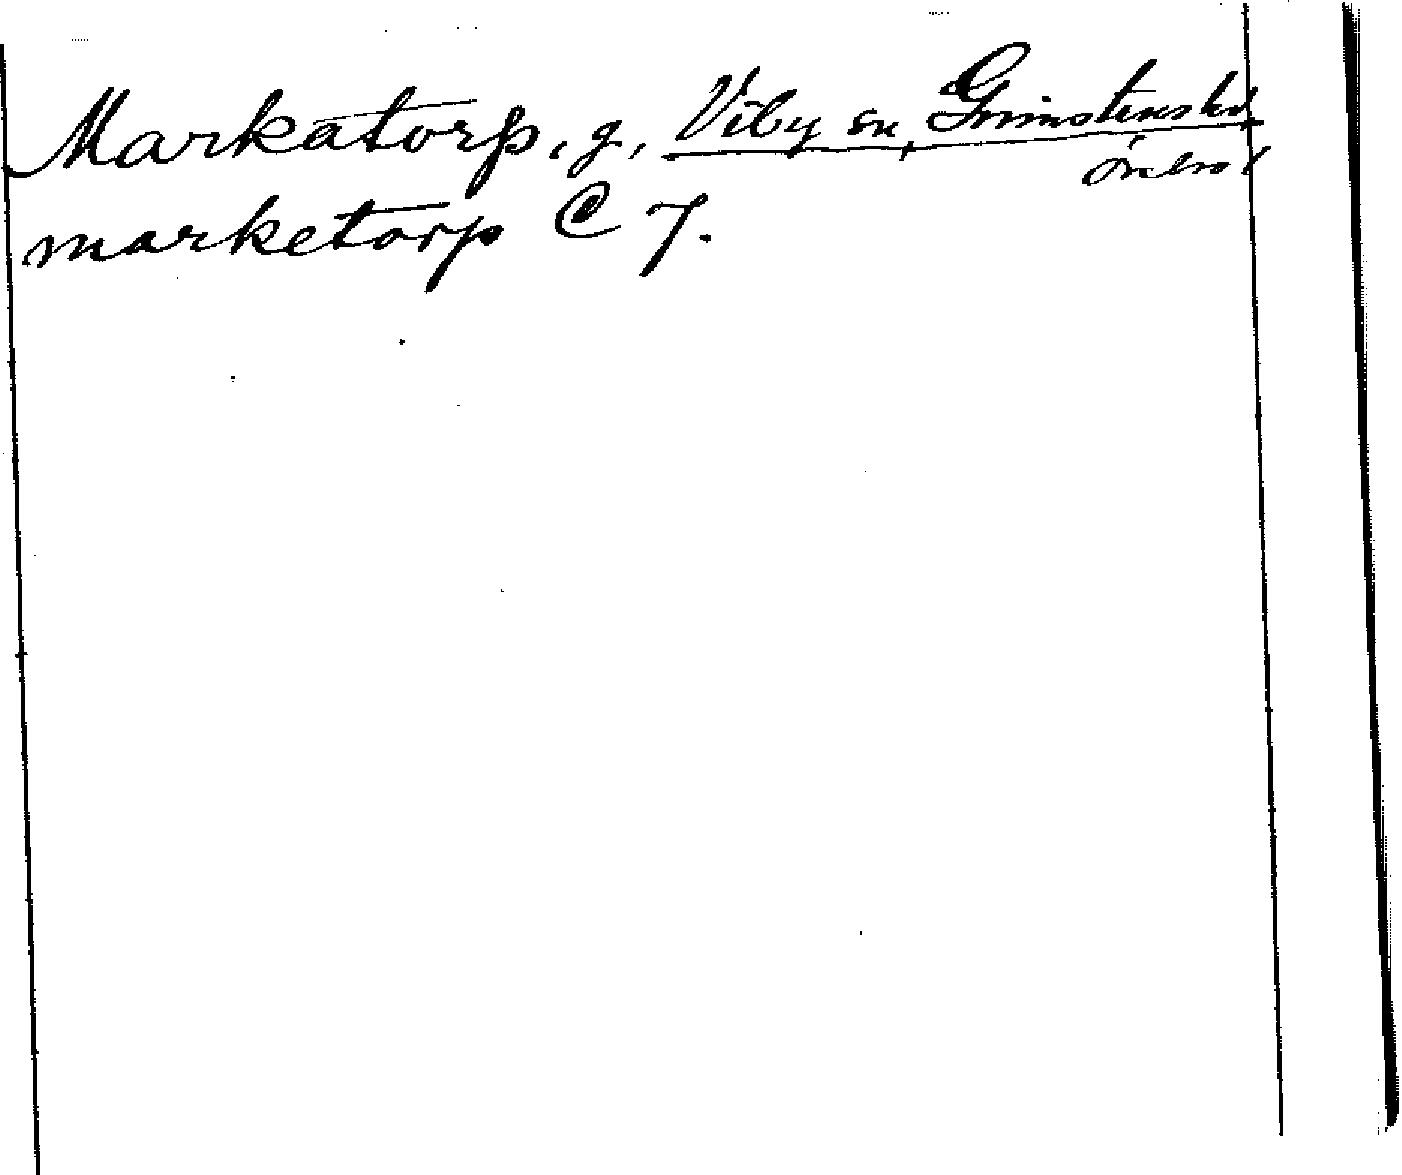 Markatorp, g, Viby sn, Grimstens hd
Örebro l
marketorp C 7.